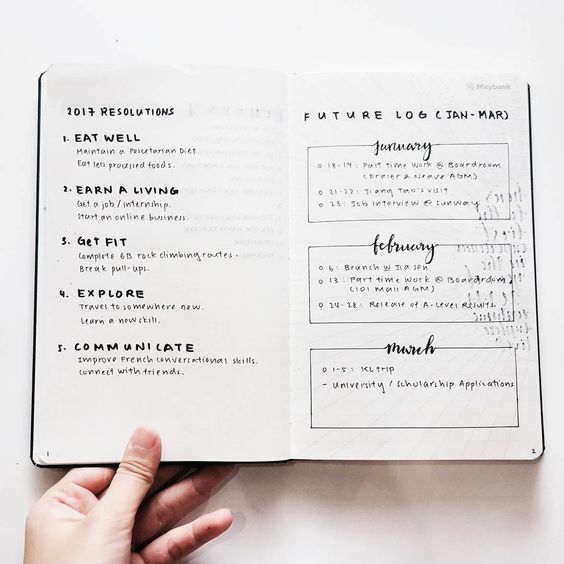 2017 RESOLUTIONS
1. EAT WELL
Maintain a Pescetarian Diet.
Eat less processed foods.
2. EARN A LIVING
Get a job / internship.
Start an online business.
3. Get FIT
Complete 6B rock climbing routes.
Break pull-ups.
4. EXPLORE
Travel to somewhere new.
Learn a new skill.
5. COMMUNICATE
Improve French conversational skills.
Connect with friends.
1
Maybank
FUTURE LOG (JAN-MAR)
january
18-19: Part time work @ Boardroom
(Fraser & Neave AGM)
21-22: Jiang Tao's visit
23: Job Interview @ Sunway
february
6: Brunch w Jia Sen
13: Part time work @ Boardroom
(IOI Mall AGM)
24-28: Release of A-Level Results
march
1-5: KL trip
- University / Scholarship Applications
2